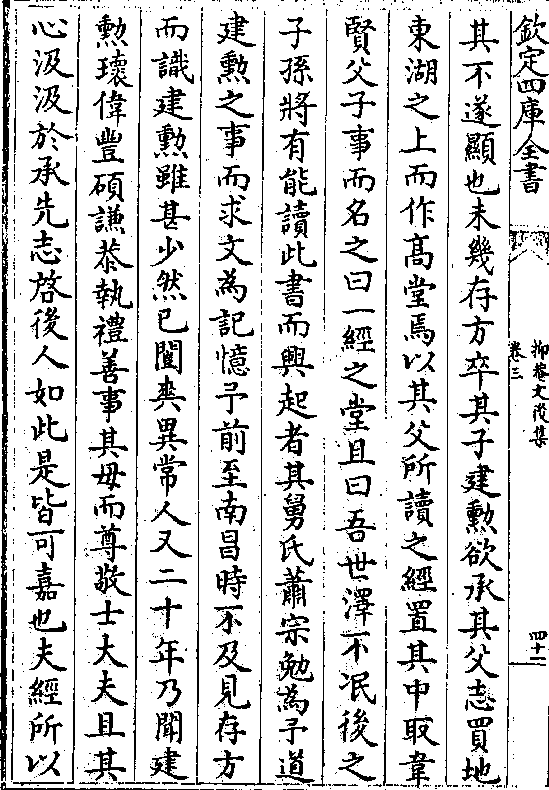 欽定四庫全書
抑菴文後集
卷三
四十一
其不遂顯也未幾存方卒其子建勲欲承其父志買地
東湖之上而作髙堂焉以其父所讀之經置其中取韋
賢父子事而名之曰一經之堂且曰吾世澤不泯後之
子孫將有能讀此書而興起者其舅氏蕭宗勉為予道
建勲之事而求文為記憶予前至南昌時不及見存方
而識建勲雖甚少然已闓爽異常人又二十年乃聞建
勲瓌偉豐碩謙恭執禮善事其母而尊敬士大夫且其
心汲汲於承先志啓後人如此是皆可嘉也夫經所以